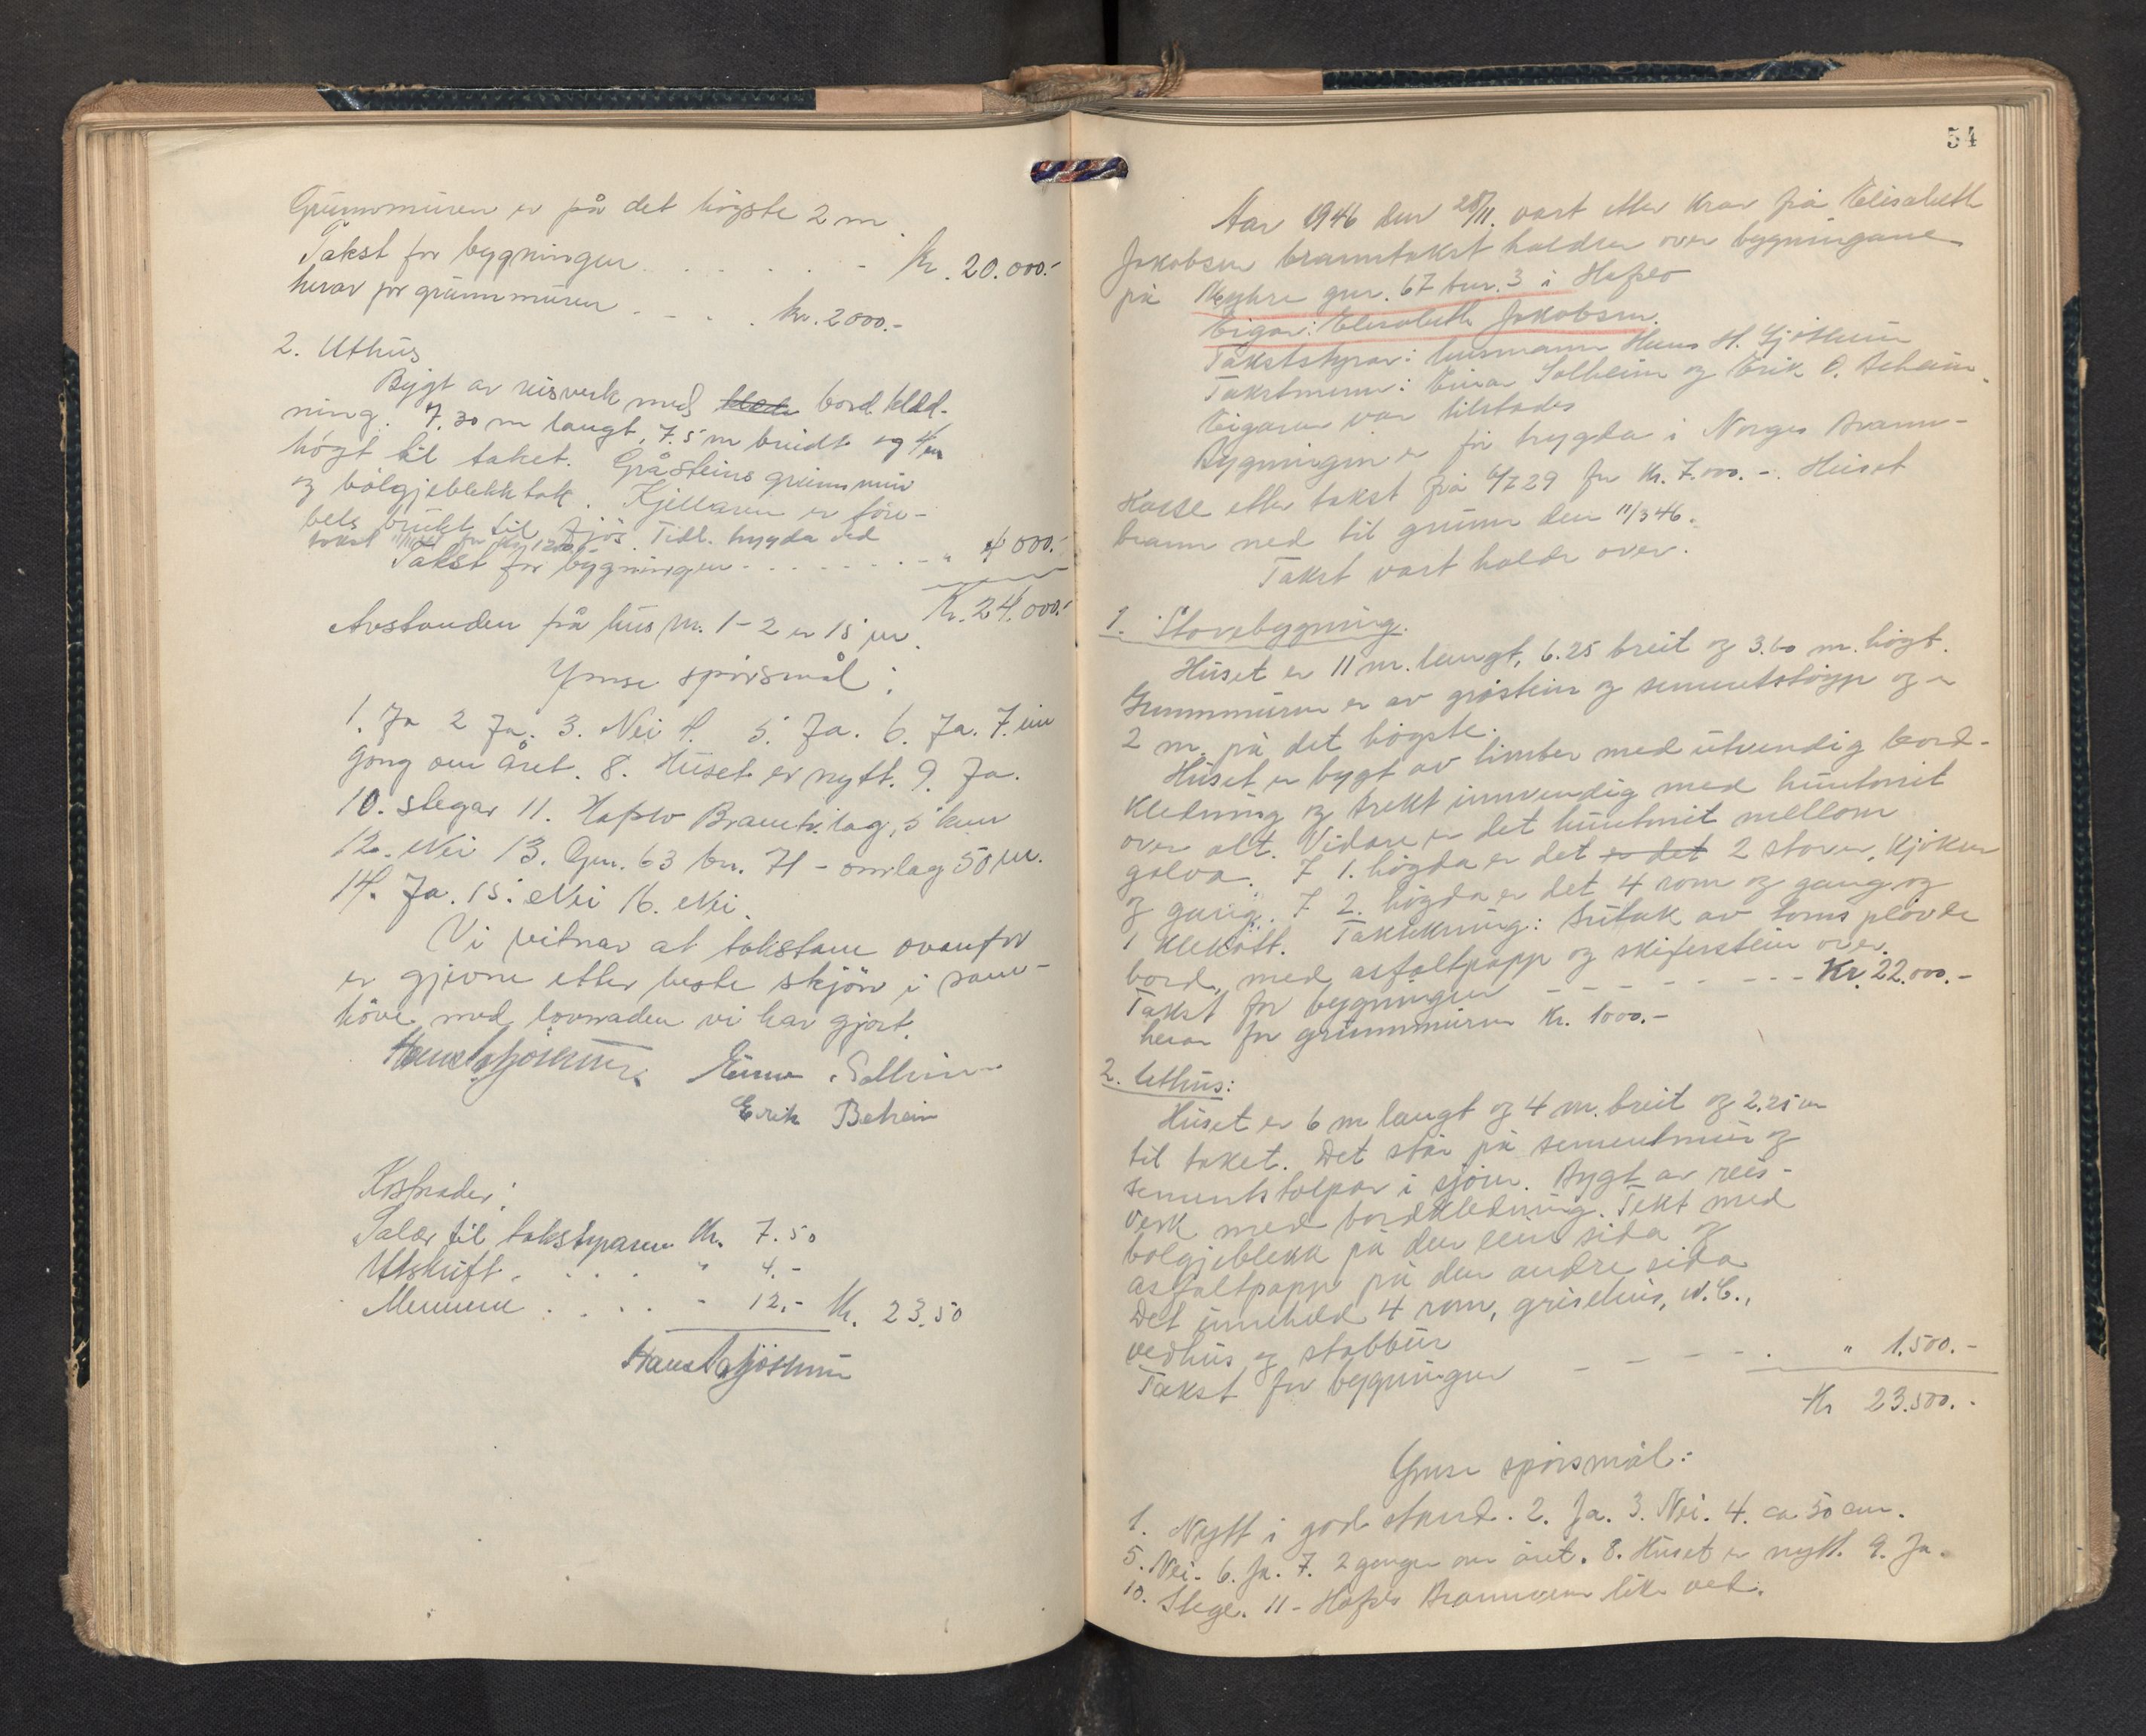 Grunnmuren er på det högste 2 m.
Takst for bygningen . . . . . - Kr. 20.000.-
herav for grunnmuren . - . . kr. 2000.-
2. Uthus
Bygt av reisverk med bord kled-
ning. 7,30 m langt, 7.5 m breidt og 4 m
högt til taket. Gråsteins grunnmur
og bölgjeblekktak. Kjellaren er före-
bels brukt til fjös. Tidl. trygda ved
takst for Kr 1200
Takst for bygningen . . . . . . . - " 4000.-
Kr. 24.000.-
Avstanden frå hus nr. 1-2 er 15 m.
Ymse spörsmål:
1. Ja 2 Ja. 3. Nei 4. 5. Ja. 6. Ja. 7. ein
gong om året. 8. Huset er nytt. 9. Ja.
10. stegar 11. Hafslo Brannk. lag, 5 km
12. Nei 13. Gnr. 63 bn. 71 - omlag 50 m.
14. Ja. 15. Nei 16. Nei.
Vi vitnar at takstane ovanfor
er gjevne etter beste skjön i sam-
höve med lovnaden vi har gjort.
Einar Solheim
Erik Beheim
Kostnader:
Salær til takstyraren Kr. 7.50
Utskrift . . . . " 4.-
Mennene . . . . - 12.- Kr. 23.50
54
Aar 1946 den 28/11. vart etter krav frå Elisabeth
Jakobsen branntakst halden over bygningane
på gnr. 67 bnr. 3 i Hafslo
Eigar: Elisabeth Jakobsen.
Takststyrar: lensmann Hans H. Gjöthun
Takstmenn: Einar Solheim og Erik O. Beheim.
Eigaren var tilstades
Bygningen er för trygda i Norges Brann-
Kasse etter takst frå 29 for Kr. 7.000.-. Huset
brann ned til grunn den 11/3 46.
Takst vart halde over.
1. Stovebygning.
Huset er 11 m. langt, 6.25 breit og 3.60 m. högt.
Grunnmuren er av gråstein og sementstöyp og er
2 m. på det högste.
Huset er bygt av timber med utvendig bord-
kledning og trekt innvendig med huntonit
over alt. Vidare er det huntonit mellom
golva. I 1. högda er det er det 2 stover, kjöken
og gang. I 2. högda er det 4 rom og gang og
1 klekott. Taktekning: Sutak av toms plövde
bord, med asfaltpapp og skiferstein over.
Takst for bygningen - - - - - - - - Kr. 22.000.-
herav for grunnmuren Kr. 1000.-
2. Uthus:
Huset er 6 m langt og 4 m. breit og 2,25 m
til taket. Det står på sementmur og
sementstolpar i sjöen. Bygt av reis-
verk med bordkledning. Tekt med
bölgjeblekk på den eine sida og
asfaltpapp på den andre sida
Det inneheld 4 rom, grisehus, W.C.,
vedhus og stabbur
Takst for bygningen - - - - - . " 1.500.-
Kr 23.500.-
Ymse spörsmål:
1. Nytt i god stand. 2. Ja. 3. Nei. 4. ca 50 cm.
5. Nei. 6. Ja. 7. 2 gonger om året. 8. Huset er nytt. 9. Ja.
10. Stege. 11 - Hafslo Brannvern like ved.